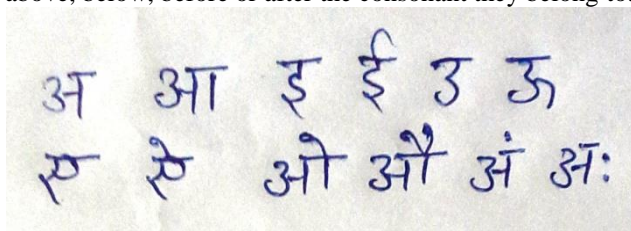 above, below, before or after the consonant they belong to
अ आ इ ई उ ऊ
ए ऐ ओ औ अं अः